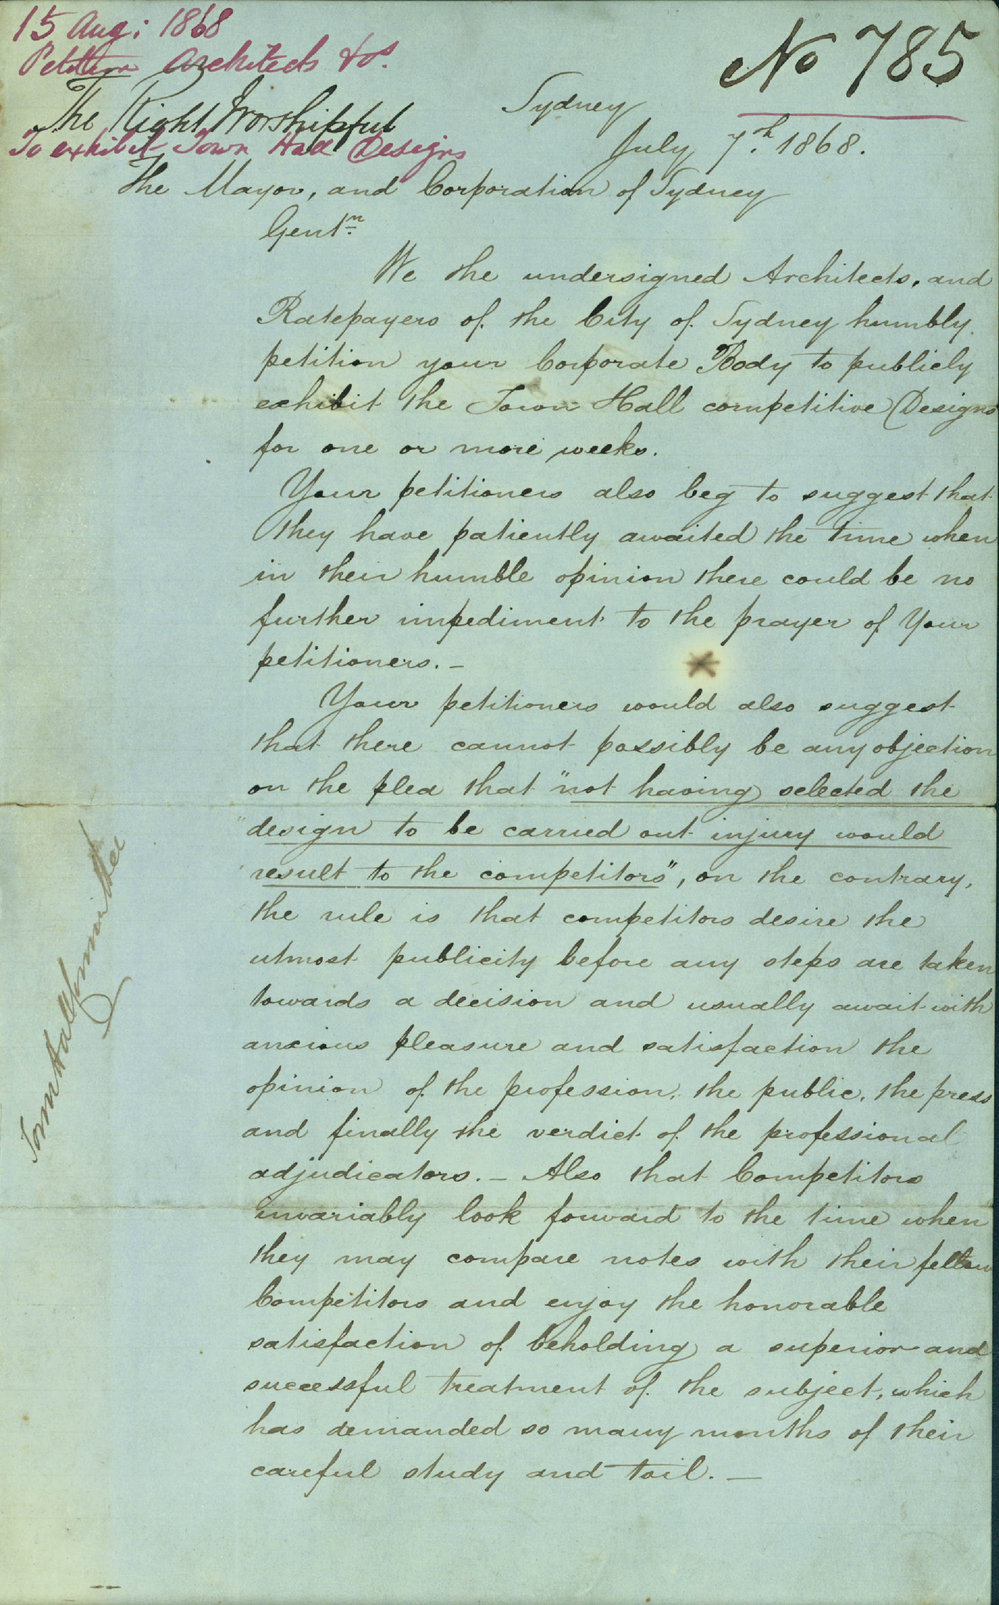 15 Aug: 1868
Petition Architects &c.
No 785
The Right Worshipful
To exhibit Town Hall Designs
Sydney
July 7th. 1868.
The Mayor, and Corporation of Sydney
Gentn.
We the undersigned Architects, and
Ratepayers of the City of Sydney humbly
petition your Corporate Body to publicly
exhibit the Town Hall competitive Designs
for one or more weeks.
Your petitioners also beg to suggest that
they have patiently awaited the time when
in their humble opinion there could be no
further impediment to the prayer of Your
petitioners. –
Your petitioners would also suggest
that there cannot possibly be any objection
on the plea that "not having selected the
design to be carried out injury would
result to the competitors", on the contrary,
the rule is that competitors desire the
utmost publicity before any steps are taken
towards a decision and usually await with
anxious pleasure and satisfaction the
opinion of the profession, the public, the press
and finally the verdict of the professional
adjudicators. – Also that Competitors
invariably look forward to the time when
they may compare notes with their fellow
Competitors and enjoy the honorable
satisfaction of beholding a superior and
successful treatment of the subject, which
has demanded so many months of their
careful study and toil. –
Town Hall Committee